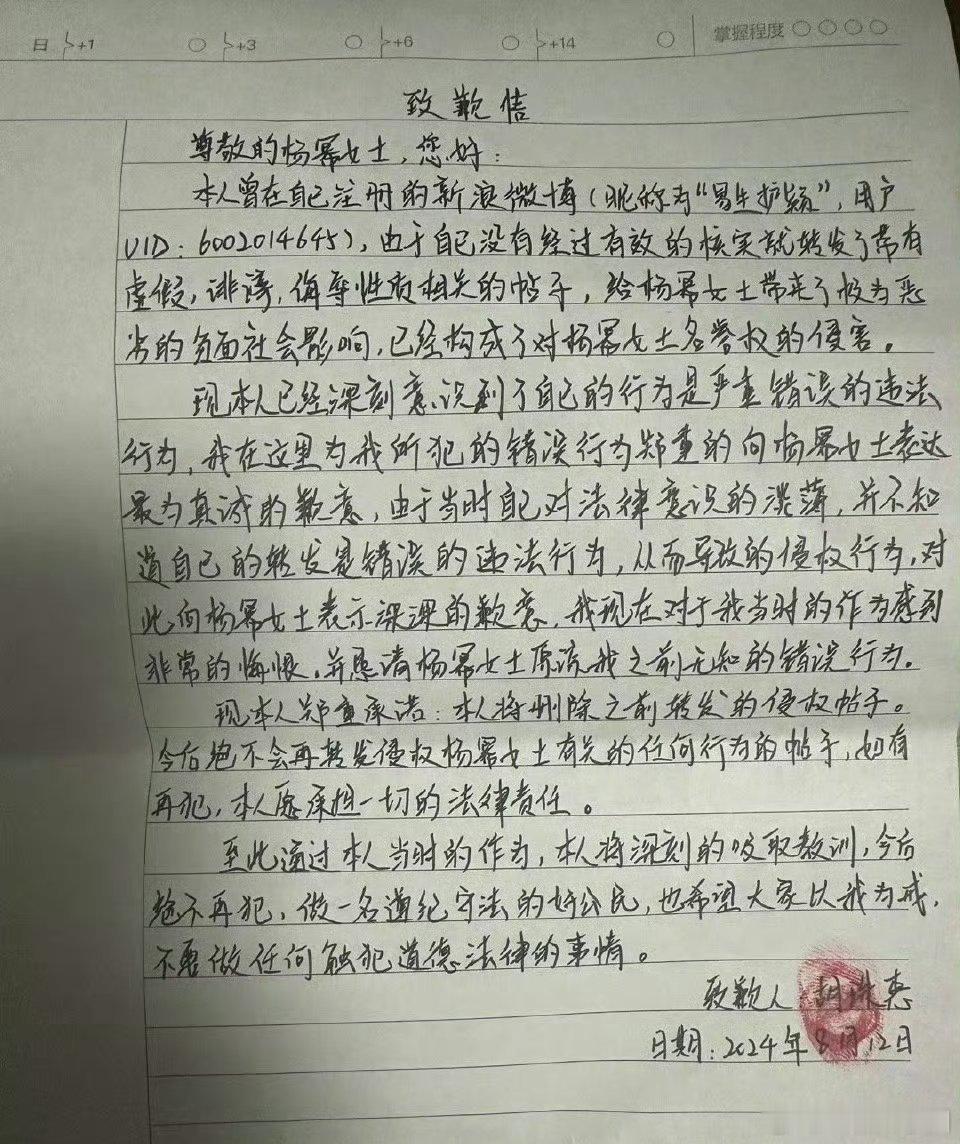 日 +1 +3 +6 +14 掌握程度
致歉信
尊敬的杨幂女士，您好：
本人曾在自己注册的新浪微博（昵称为“男生护颖”，用户
UID：6002014645），由于自己没有经过有效的核实就转发了带有
虚假，诽谤，侮辱性质相关的帖子，给杨幂女士带来了极为恶
劣的负面社会影响，已经构成了对杨幂女士名誉权的侵害。
现本人已经深刻意识到了自己的行为是严重错误的违法
行为，我在这里为我所犯的错误行为郑重的向杨幂女士表达
最为真诚的歉意，由于当时自己对法律意识的淡薄，并不知
道自己的转发是错误的违法行为，从而导致的侵权行为，对
此向杨幂女士表示深深的歉意，我现在对于我当时的作为感到
非常的悔恨，并恳请杨幂女士原谅我之前无知的错误行为。
现本人郑重承诺：本人将删除之前转发的侵权帖子。
今后绝不会再转发侵权杨幂女士有关的任何行为的帖子，如有
再犯，本人愿承担一切的法律责任。
至此通过本人当时的作为，本人将深刻的吸取教训，今后
绝不再犯，做一名遵纪守法的好公民，也希望大家以我为戒，
不要做任何触犯道德法律的事情。
致歉人 胡
日期：2024年8月12日